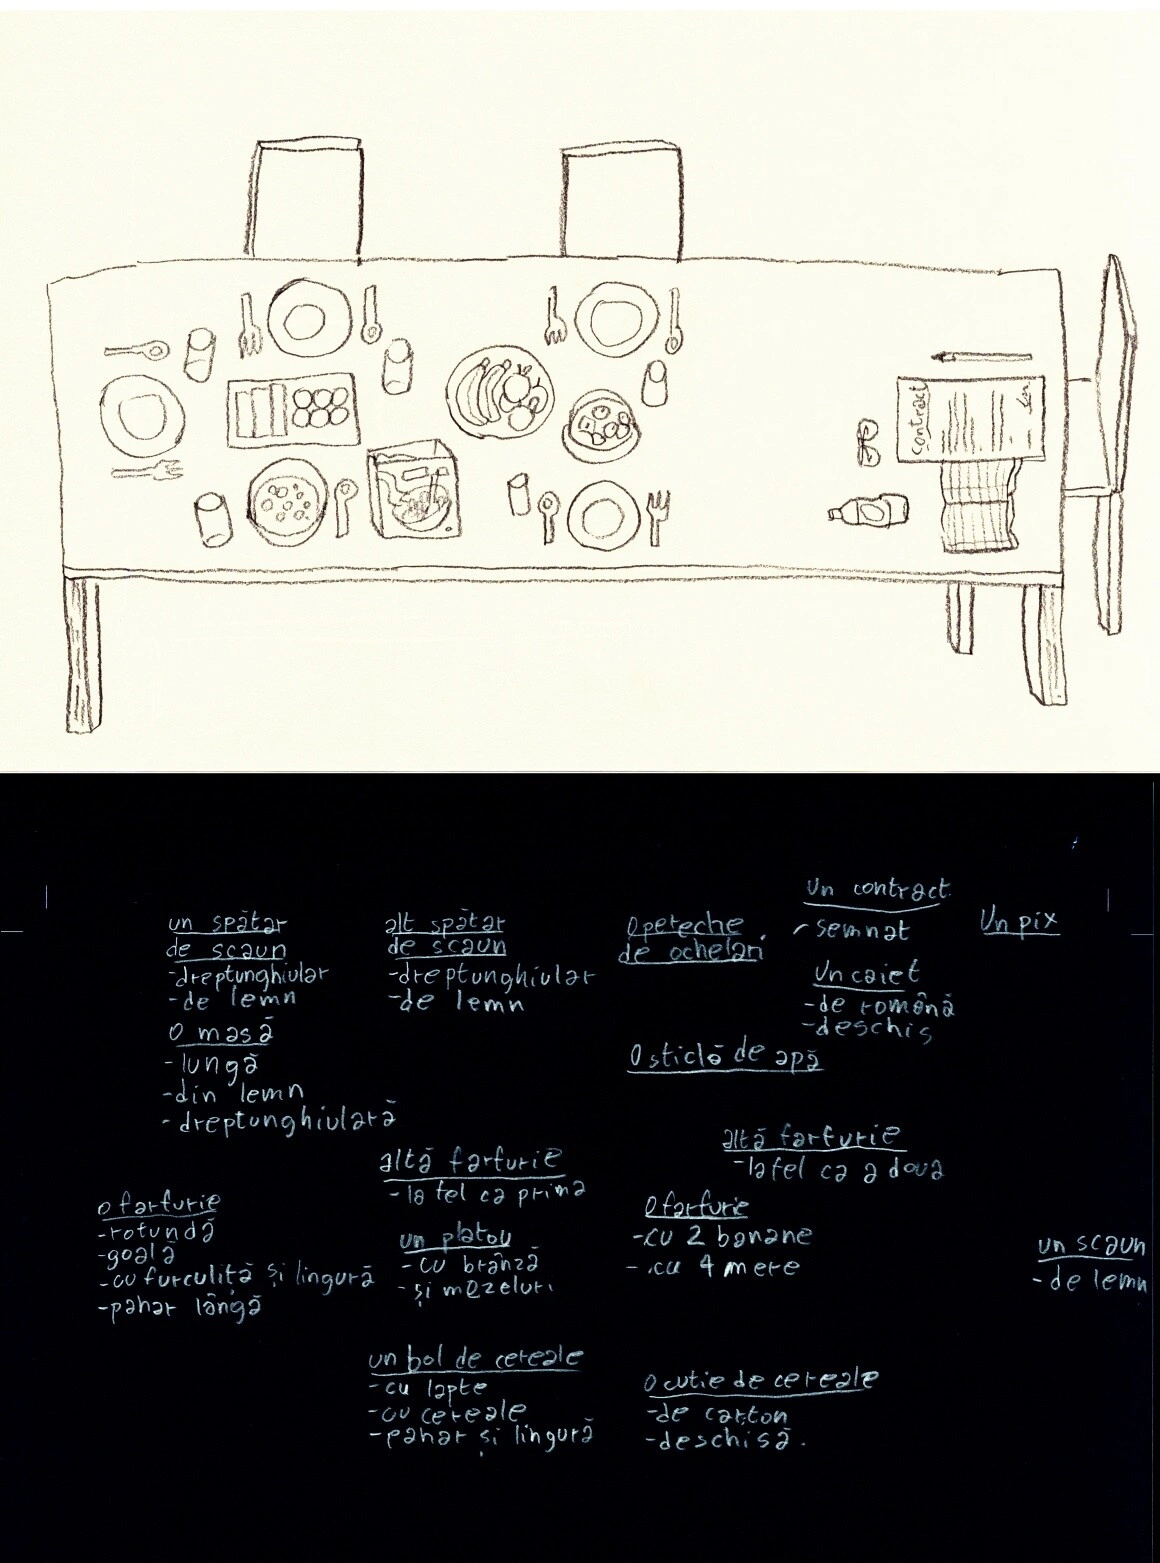 Contract
un spătar
de scaun
-dreptunghiular
-de lemn
o masă
-lungă
-din lemn
-dreptunghiulară
alt spătar
de scaun
-dreptunghiular
-de lemn
O pereche
de ochelari
Un contract
-semnat
Un caiet
-de română
-deschis
Un pix
O sticlă de apă
o farfurie
-rotundă
-goală
-cu furculiță și lingură
-pahar lângă
altă farfurie
-la fel ca prima
un platou
-cu brânză
-și mezeluri
altă farfurie
-la fel ca a doua
O farfurie
-cu 2 banane
-cu 4 mere
un scaun
-de lemn
un bol de cereale
-cu lapte
-cu cereale
-pahar și lingură
O cutie de cereale
-de carton
-deschisă.